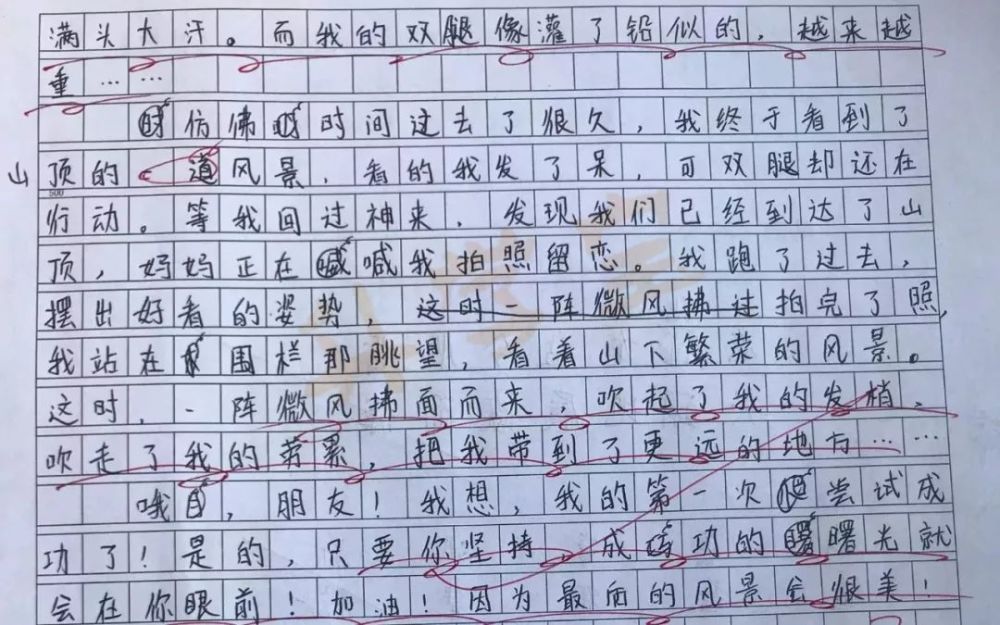 满头大汗。而我的双腿像灌了铅似的，越来越
重……
仿佛时间过去了很久，我终于看到了
山顶的道风景，看的我发了呆，可双腿却还在
行动。等我回过神来，发现我们已经到达了山
顶，妈妈正在喊我拍照留恋。我跑了过去，
摆出好看的姿势，这时一阵微风拂过拍完了照，
我站在围栏那眺望，看着山下繁荣的风景。
这时，一阵微风拂面而来，吹起了我的发梢，
吹走了我的劳累，把我带到了更远的地方……
哦，朋友！我想，我的第一次尝试成
功了！是的，只要你坚持，成功的曙光就
会在你眼前！加油！因为最后的风景会很美！